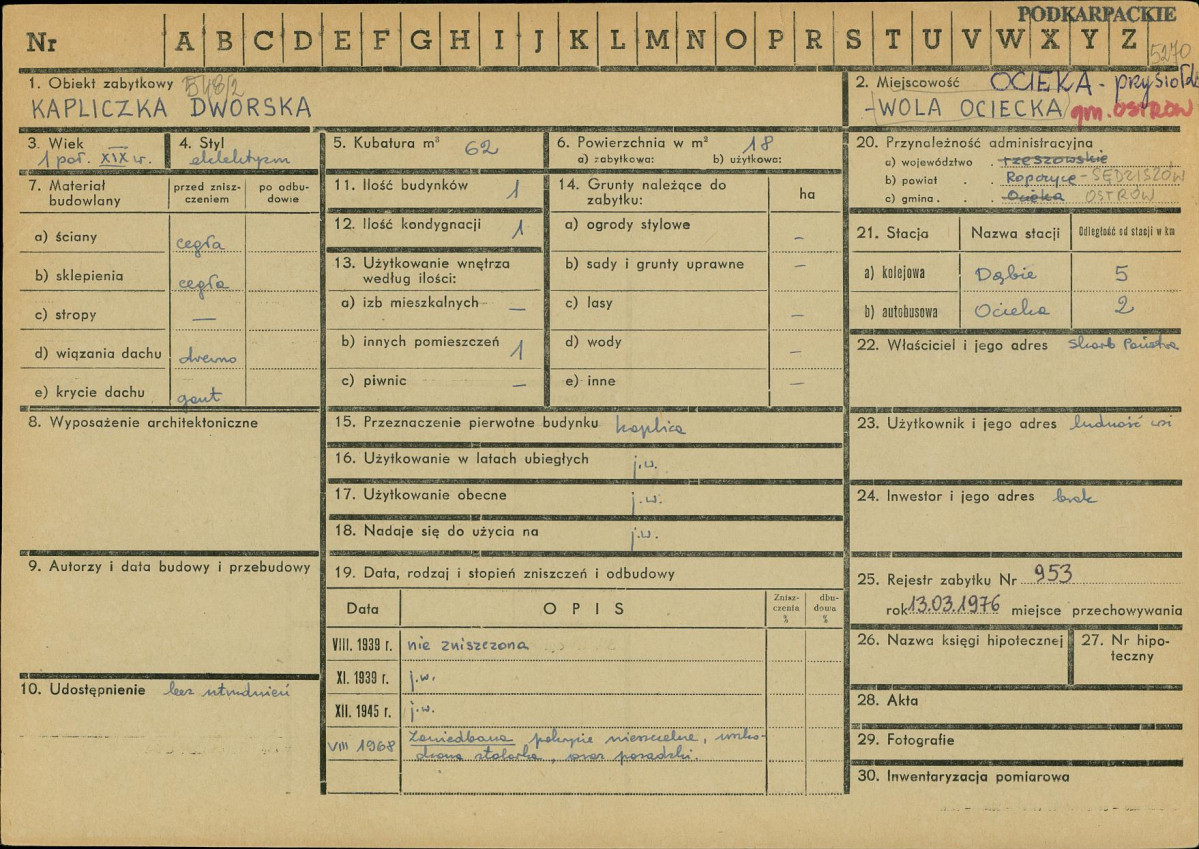 PODKARPACKIE
Nr A B C D E F G H I J K L M N O P R S T U V W X Y Z
5270
1. Obiekt zabytkowy 548/2
KAPLICZKA DWORSKA
2. Miejscowość OCIEKA - przysiółek
- WOLA OCIECKA gm. OSTRÓW
3. Wiek
1 poł. XIX w.
4. Styl
eklektyzm
5. Kubatura m³ 62
6. Powierzchnia w m² 18
a) zabytkowa: b) użytkowa:
7. Materiał budowlany
przed zniszczeniem
po odbudowie
a) ściany cegła
b) sklepienia cegła
c) stropy —
d) wiązania dachu drewno
e) krycie dachu gont
8. Wyposażenie architektoniczne
9. Autorzy i data budowy i przebudowy
10. Udostępnienie bez utrudnień
11. Ilość budynków 1
12. Ilość kondygnacji 1
13. Użytkowanie wnętrza
według ilości:
a) izb mieszkalnych —
b) innych pomieszczeń 1
c) piwnic —
14. Grunty należące do
zabytku:
ha
a) ogrody stylowe —
b) sady i grunty uprawne —
c) lasy —
d) wody —
e) inne —
15. Przeznaczenie pierwotne budynku kaplica
16. Użytkowanie w latach ubiegłych j.w.
17. Użytkowanie obecne j.w.
18. Nadaje się do użycia na j.w.
19. Data, rodzaj i stopień zniszczeń i odbudowy
Data OPIS Zniszczenia % dbudowa %
VIII. 1939 r. nie zniszczona
XI. 1939 r. j.w.
XII. 1945 r. j.w.
VIII 1968 Zaniedbana pokrycie nieszczelne, uszko-
dzona stolarka, oraz posadzki.
20. Przynależność administracyjna
a) województwo . rzeszowskie
b) powiat . . Ropczyce - SĘDZISZÓW
c) gmina . . . Ocieka OSTRÓW
21. Stacja Nazwa stacji Odległość od stacji w km
a) kolejowa Dąbie 5
b) autobusowa Ocieka 2
22. Właściciel i jego adres Skarb Państwa
23. Użytkownik i jego adres ludność wsi
24. Inwestor i jego adres brak
25. Rejestr zabytku Nr 953
rok 13.03.1976 miejsce przechowywania
26. Nazwa księgi hipotecznej
27. Nr hipo-
teczny
28. Akta
29. Fotografie
30. Inwentaryzacja pomiarowa